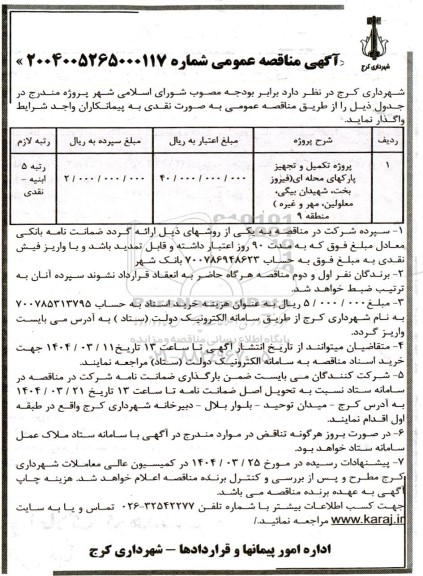 شهرداری کرج
«آگهی مناقصه عمومی شماره ۲۰۰۴۰۰۵۲۶۵۰۰۰۱۱۷»
شهرداری کرج در نظر دارد برابر بودجه مصوب شورای اسلامی شهر پروژه مندرج در
جدول ذیل را از طریق مناقصه عمومی به صورت نقدی به پیمانکاران واجد شرایط
واگذار نماید.
ردیف شرح پروژه مبلغ اعتبار به ریال مبلغ سپرده به ریال رتبه لازم
۱ پروژه تکمیل و تجهیز پارکهای محله ای(فیروز بخت، شهیدان بیگی، معلولین، مهر و غیره ) منطقه ۹ ۴۰/۰۰۰/۰۰۰/۰۰۰ ۲/۰۰۰/۰۰۰/۰۰۰ رتبه ۵ ابنیه - نقدی
۱- سپرده شرکت در مناقصه به یکی از روشهای ذیل ارائه گردد ضمانت نامه بانکی
معادل مبلغ فوق که به مدت ۹۰ روز اعتبار داشته و قابل تمدید باشد و یا واریز فیش
نقدی به مبلغ فوق به حساب ۷۰۰۷۸۶۹۴۸۶۲۳ بانک شهر
۲- برندگان نفر اول و دوم مناقصه هرگاه حاضر به انعقاد قرارداد نشوند سپرده آنان به
ترتیب ضبط خواهد شد.
۳- مبلغ ۵/۰۰۰/۰۰۰ ریال به عنوان هزینه خرید اسناد به حساب ۷۰۰۷۸۵۳۱۳۷۹۵
به نام شهرداری کرج از طریق سامانه الکترونیک دولت (ستاد ) به آدرس می بایست
واریز گردد.
۴- متقاضیان میتوانند از تاریخ انتشار آگهی تا ساعت ۱۳ تاریخ ۱۱ / ۰۳ / ۱۴۰۴ جهت
خرید اسناد مناقصه به سامانه الکترونیک دولت (ستاد) مراجعه نمایند.
۵- شرکت کنندگان می بایست ضمن بارگذاری ضمانت نامه شرکت در مناقصه در
سامانه ستاد نسبت به تحویل اصل ضمانت نامه تا ساعت ۱۳ تاریخ ۲۱ / ۰۳ / ۱۴۰۴
به آدرس کرج - میدان توحید - بلوار بلال - دبیرخانه شهرداری کرج واقع در طبقه
اول اقدام نمایند.
۶- در صورت بروز هرگونه تناقض در موارد مندرج در آگهی با سامانه ستاد ملاک عمل
سامانه ستاد خواهد بود.
۷- پیشنهادات رسیده در مورخ ۲۵ / ۰۳ / ۱۴۰۴ در کمیسیون عالی معاملات شهرداری
کرج مطرح و پس از بررسی و کنترل برنده مناقصه اعلام خواهد شد. هزینه چاپ
آگهی به عهده برنده مناقصه می باشد.
جهت کسب اطلاعات بیشتر با شماره تلفن ۳۲۵۴۲۲۷۷-۰۲۶ تماس و یا به سایت
www.karaj.ir مراجعه نمائید./
اداره امور پیمانها و قراردادها – شهرداری کرج